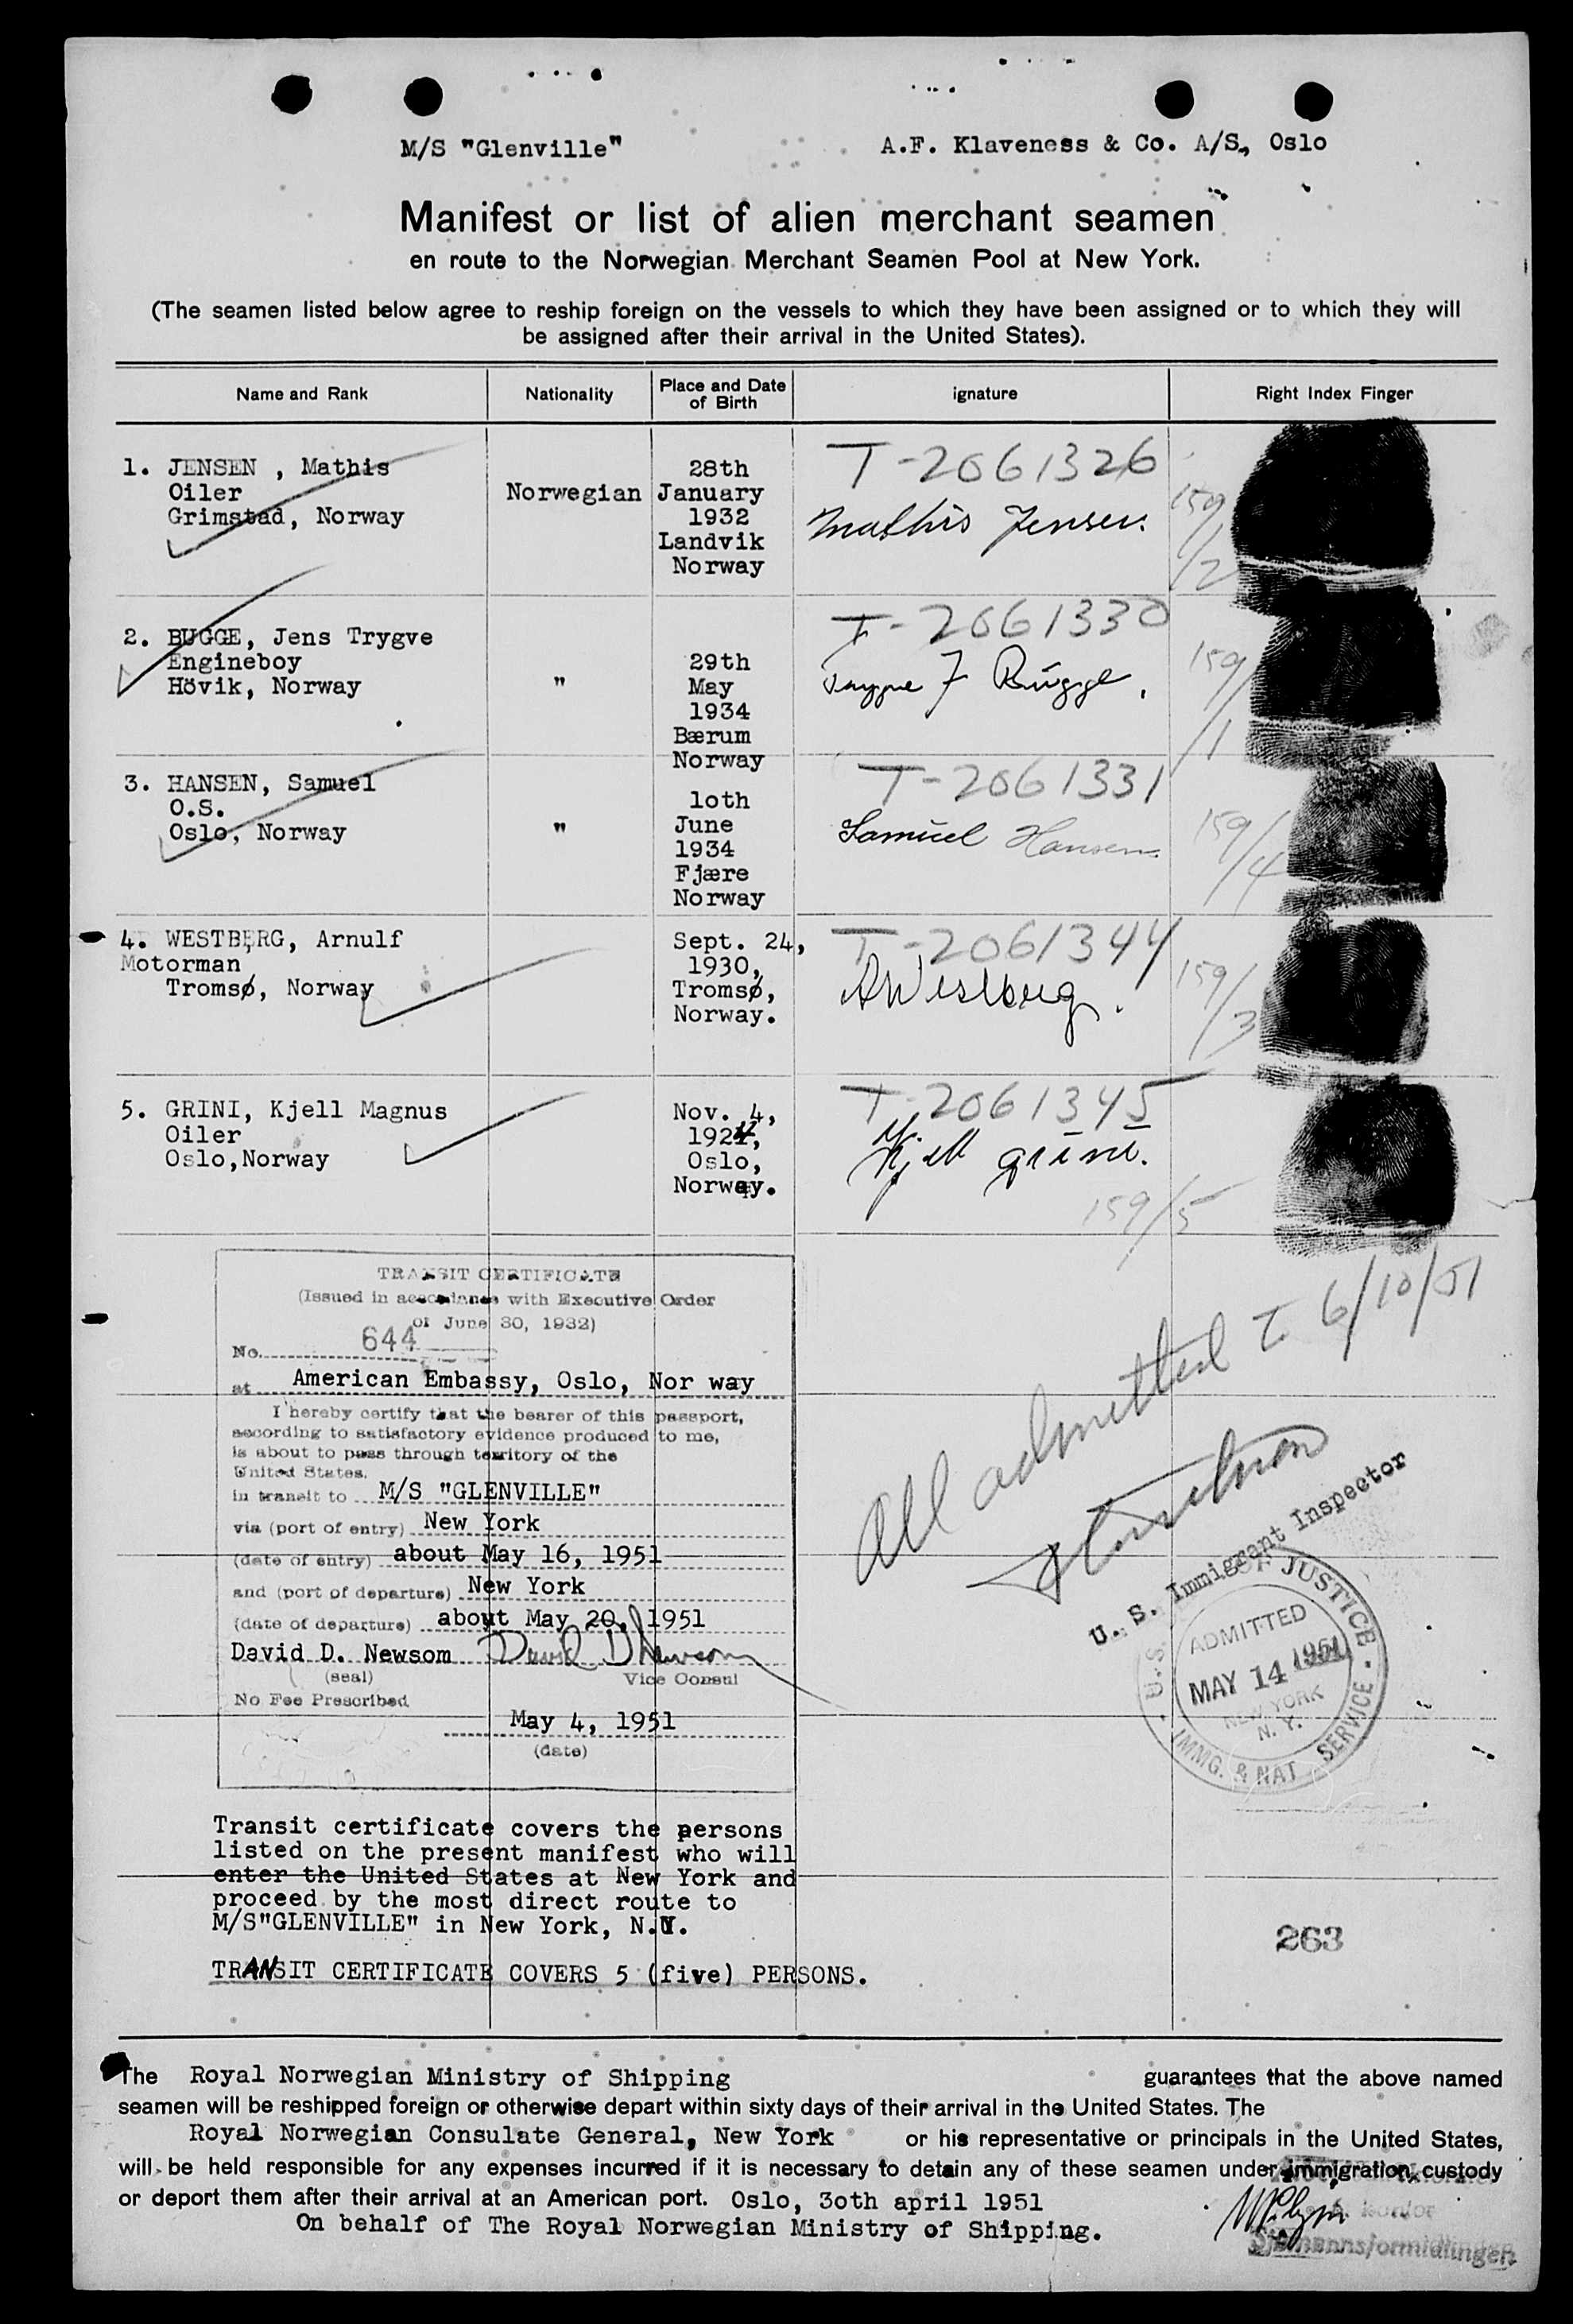 M/S "Glenville"
A.F. Klaveness & Co. A/S., Oslo
Manifest or list of alien merchant seamen
en route to the Norwegian Merchant Seamen Pool at New York.
(The seamen listed below agree to reship foreign on the vessels to which they have been assigned or to which they will
be assigned after their arrival in the United States).
Name and Rank
Nationality
Place and Date
of Birth
ignature
Right Index Finger
1. JENSEN , Mathis
Oiler
Grimstad, Norway
Norwegian
28th
January
1932
Landvik
Norway
T-2061326
Mathis Jensen.
159/2
2. BUGGE, Jens Trygve
Engineboy
Hövik, Norway
"
29th
May
1934
Bærum
Norway
T-2061330
Trygve J Bugge.
159/1
3. HANSEN, Samuel
O.S.
Oslo, Norway
"
loth
June
1934
Fjære
Norway
T-2061331
Samuel Hansen.
159/4
4. WESTBERG, Arnulf
Motorman
Tromsø, Norway
Sept. 24,
1930,
Tromsø,
Norway.
T-2061344
AWestberg.
159/3
5. GRINI, Kjell Magnus
Oiler
Oslo,Norway
Nov. 4,
192
Oslo,
Norway.
T-2061345
Kjell grini.
159/5
TRANSIT CERTIFICATE
(Issued in accordance with Executive Order
of June 30, 1932)
No. 644
at American Embassy, Oslo, Nor way
I hereby certify that the bearer of this passport,
according to satisfactory evidence produced to me,
is about to pass through territory of the
United States.
in transit to M/S "GLENVILLE"
via (port of entry) New York
(date of entry) about May 16, 1951
and (port of departure) New York
(date of departure) about May 20, 1951
David D. Newsom David D Newsom
(seal) Vice Consul
No Fee Prescribed
May 4, 1951
(date)
All admitted T 6/10/51
U. S. Immigrant Inspector
U.S. JUSTICE
ADMITTED
MAY 14 1951
NEW YORK
N. Y.
IMMG. & NAT SERVICE
Transit certificate covers the persons
listed on the present manifest who will
enter the United States at New York and
proceed by the most direct route to
M/S"GLENVILLE" in New York, N.Y.
TRANSIT CERTIFICATE COVERS 5 (five) PERSONS.
263
The Royal Norwegian Ministry of Shipping guarantees that the above named
seamen will be reshipped foreign or otherwise depart within sixty days of their arrival in the United States. The
Royal Norwegian Consulate General, New York or his representative or principals in the United States,
will be held responsible for any expenses incurred if it is necessary to detain any of these seamen under immigration custody
or deport them after their arrival at an American port. Oslo, 3oth april 1951
On behalf of The Royal Norwegian Ministry of Shipping.
Sjømannsformidlingen